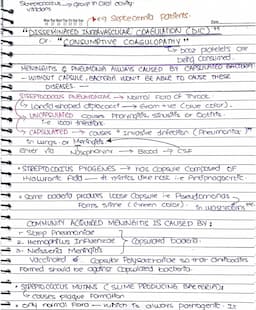 Streptococcus → group in oral cavity
viridans
→ eg Septicemia patients.
"DISSEMINATED INTRAVASCULAR COAGULATION (DIC)"
Or "CONSUMPTIVE COAGULOPATHY"
↳ bcoz platelets are
being consumed.
MENINGITIS & PNEUMONIA ALWAYS CAUSED BY CAPSULATED BACTERIA
- WITHOUT CAPSULE, BACTERIA WON'T BE ABLE TO CAUSE THESE
DISEASES
STREPTOCOCCUS PNEUMONIAE → Normal Flora of Throat.
Lanceld shaped diplococci → Gram +ve (blue color).
UNCAPSULATED causes Pharyngitis, sinusitis or Otitis.
i.e local infection.
CAPSULATED → causes invasive infection (Pneumonia)
in lungs or Meningitis
enter via Nasopharynx → Blood → CSF
STREPTOCOCCUS PYOGENES → has capsule composed of
Hyaluronic Acid
some bacteria produce loose capsule i.e Pseudomonas
forms slime (Green color)
in washrooms
COMMUNITY ACQUIRED MENINGITIS IS CAUSED BY:
1. Strep Pneumoniae
2. Hemophilus Influenzae
3. Neisseria Meningitis
Capsulated bacteria.
Vaccinated Capsular Polysaccharides so that antibodies
formed should be against Capsulated bacteria.
STREPTOCOCCUS MUTANS (SLIME PRODUCING BACTERIA):
↳ causes plaque formation
only normal flora → which is always pathogenic. It